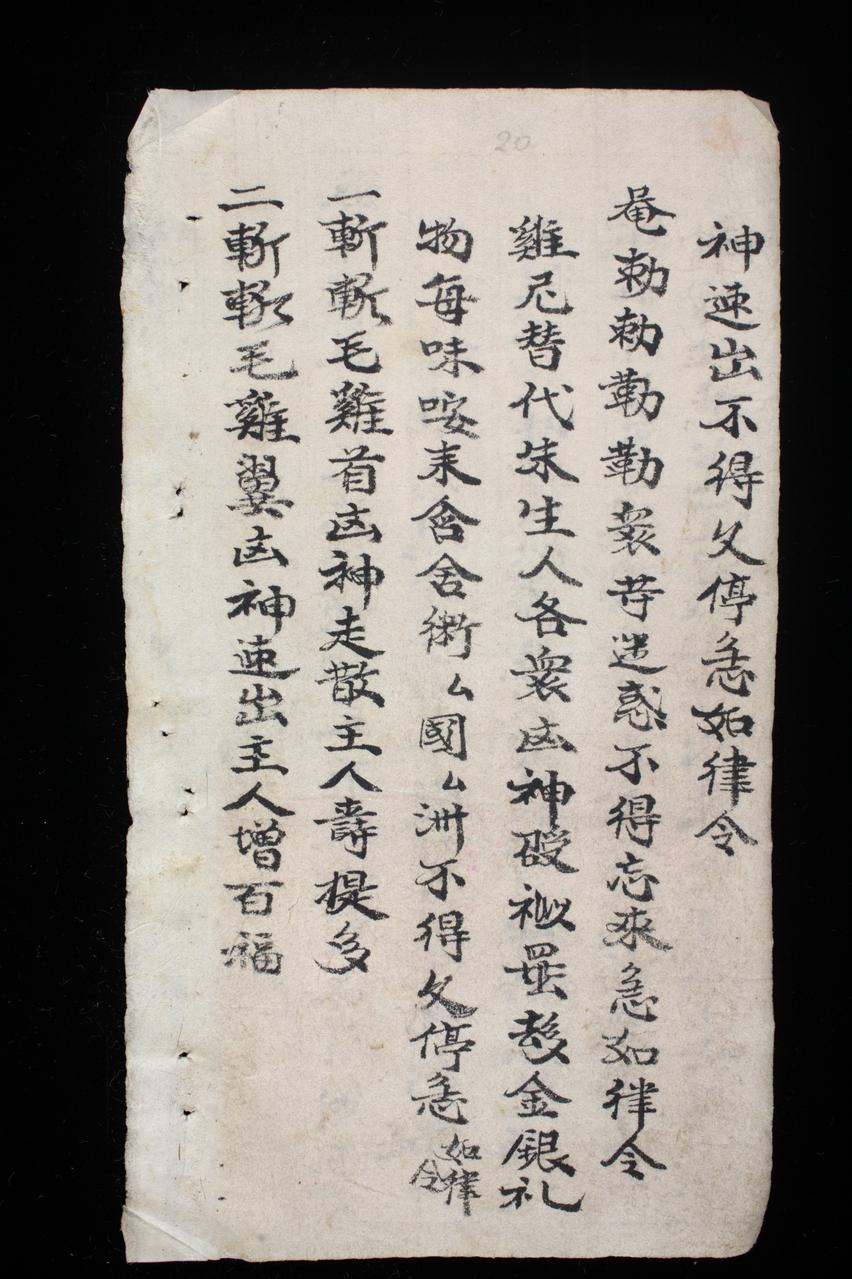 20
神速出不得久停急如律令
奄勅勅勒勒衆苛迷惑不得忘來急如律令
雞尼替代朱生人各衆凶神金銀礼
物每味咹耒含舍術厶國厶洲不得久停急如律令
一斬斬毛雞首凶神走散主人壽提多
二斬斬毛雞翼凶神速出主人增百福